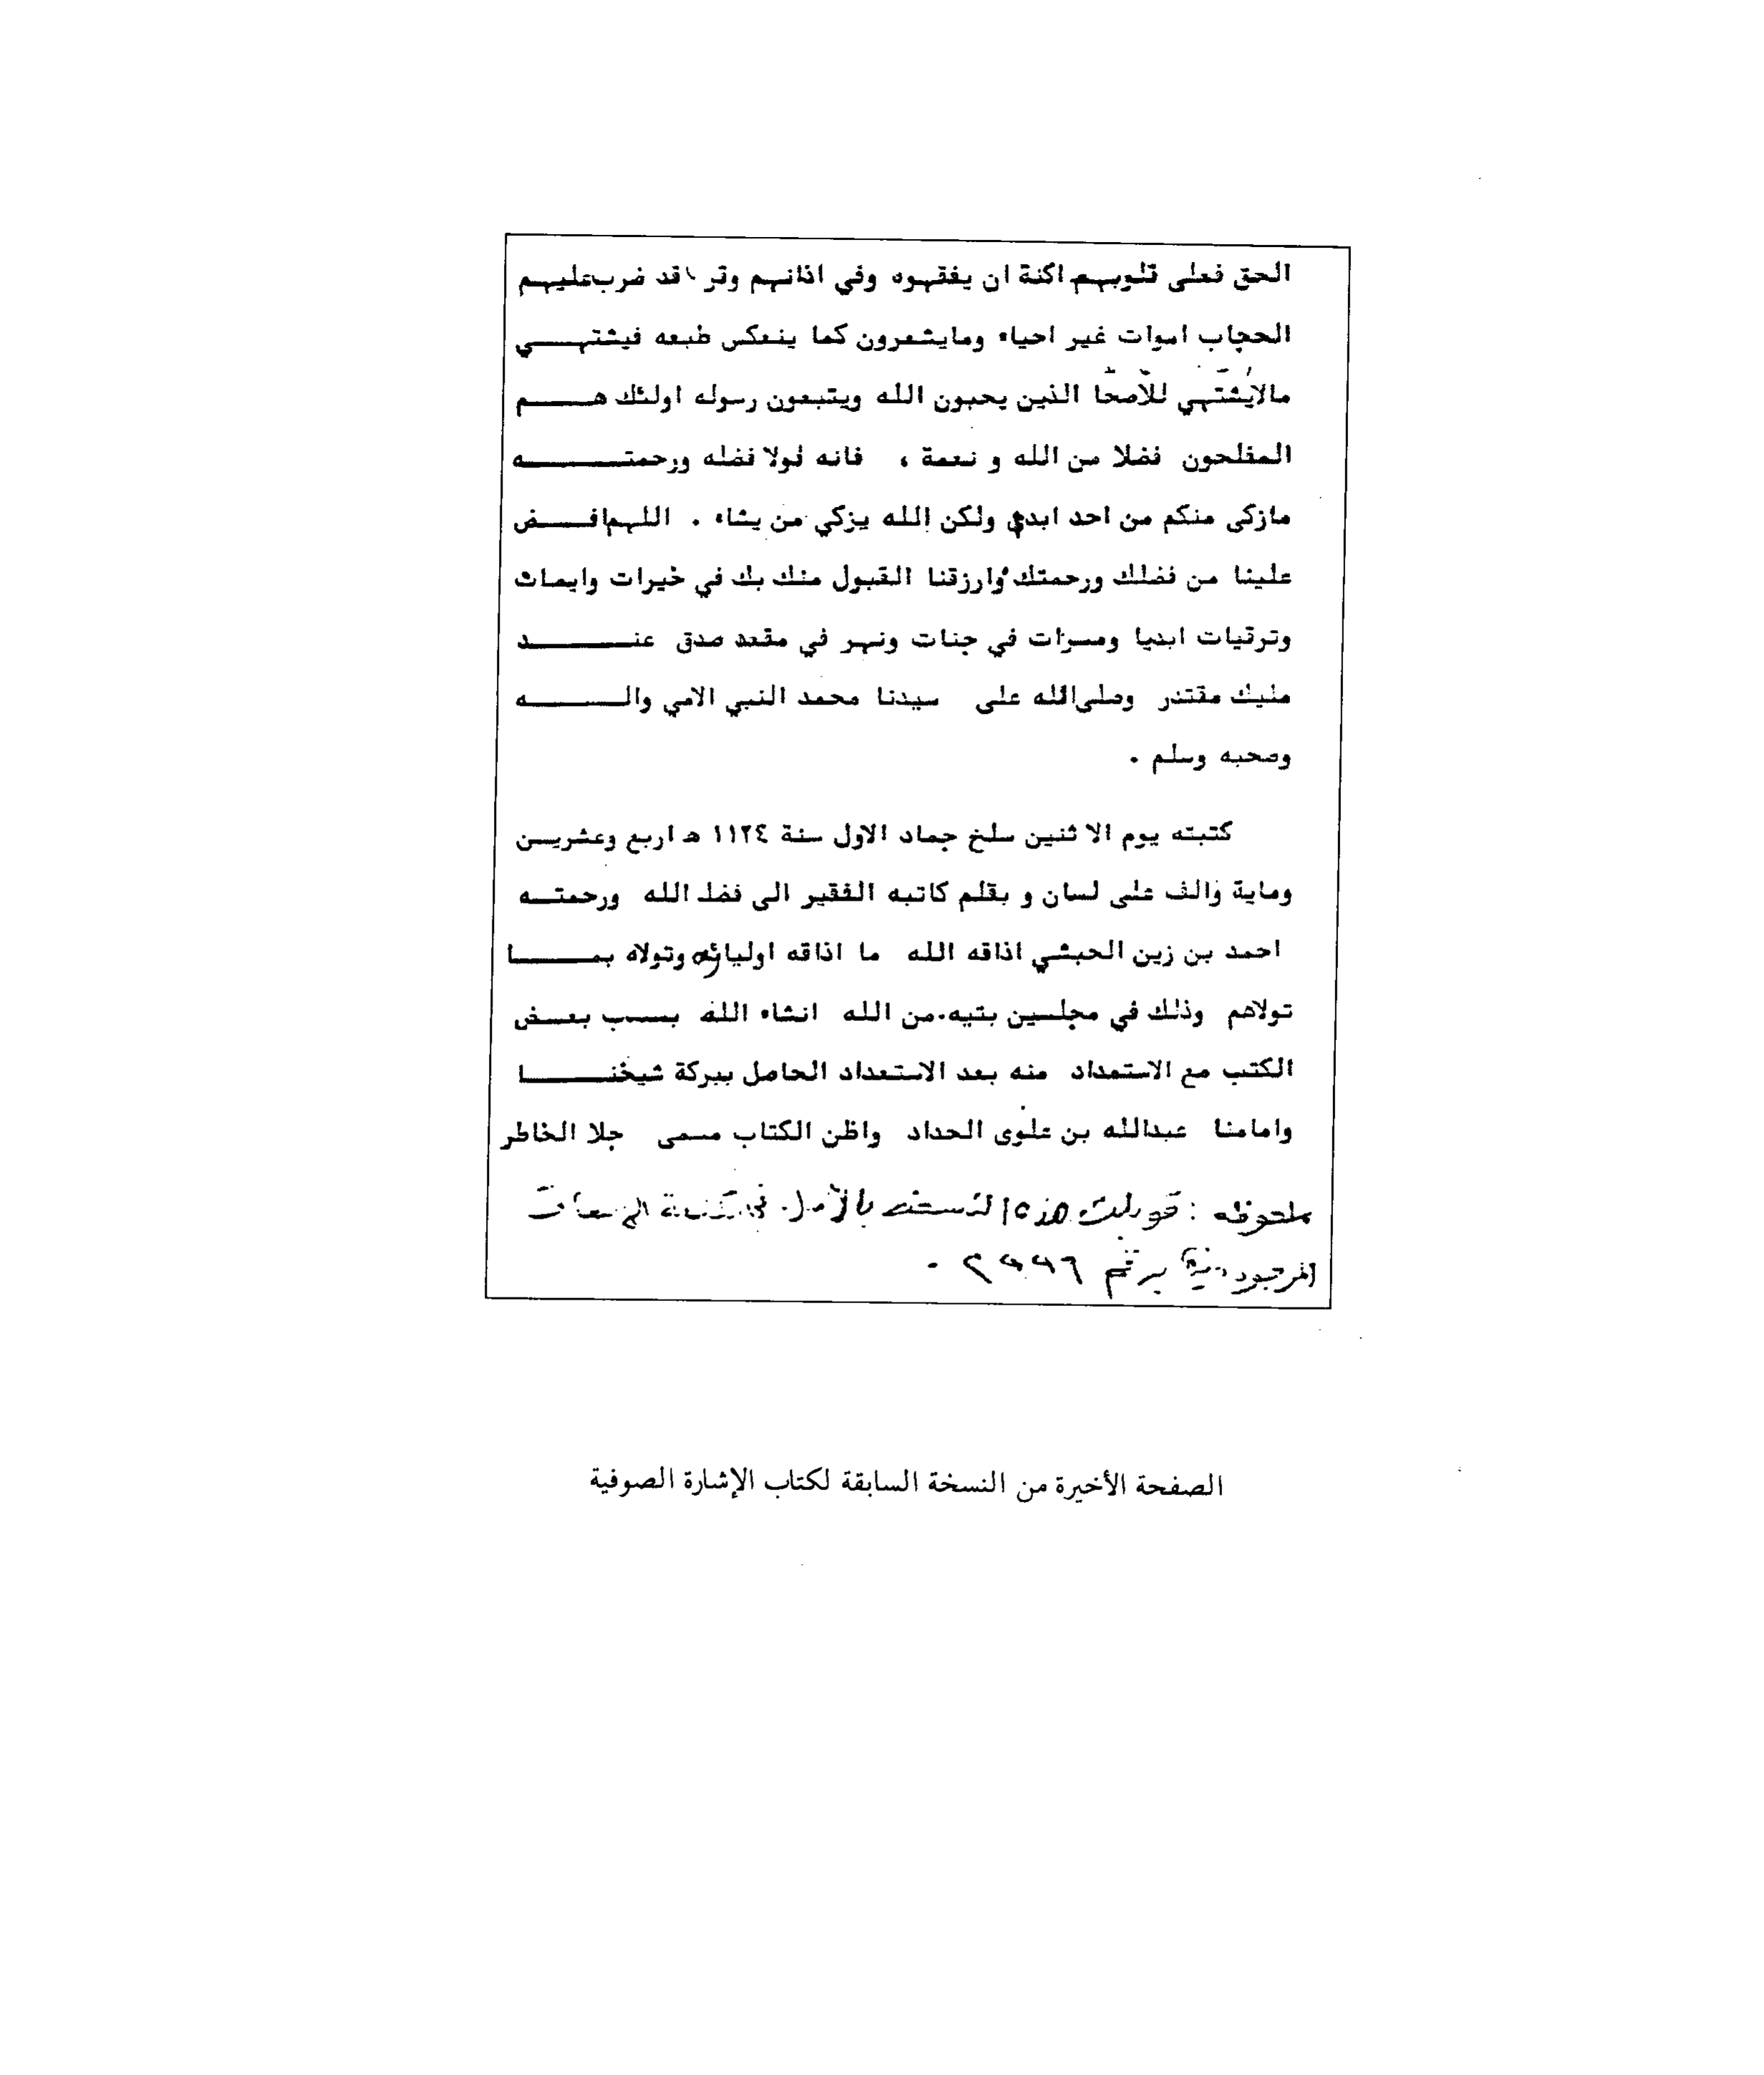 الحق فعلى قلوبهم اكنة ان يفقهوه وفي اذانهم وقر ا قد ضرب عليهم
الحجاب اموات غير احياء ومايشعرون كما ينعكس طبعه فيشتهـــي
مالايشتهي للأصحا الذين يحبون الله ويتبعون رسوله اولئك هـــم
المفلحون فضلا من الله و نعمة ، فانه لولا فضله ورحمتـــه
مازكى منكم من احد ابدي ولكن الله يزكي من يشاء . اللهم افـــض
علينا من فضلك ورحمتك وارزقنا القبول منك بك في خيرات وايصات
وترقيات ابديا ومسرات في جنات ونهر في مقعد صدق عنـــد
مليك مقتدر وصلى الله على سيدنا محمد النبي الامي والـــه
وصحبه وسلم .
كتبته يوم الا ثنين سلخ جماد الاول سنة ١١٢٤ هـ اربع وعشريـن
وماية والف على لسان و بقلم كاتبه الفقير الى فضل الله ورحمتـه
احمد بن زين الحبشي اذاقه الله ما اذاقه اوليائه وتولاه بمـــا
تولاهم وذلك في مجلسين بتيه من الله انشاء الله بسبب بعـض
الكتب مع الاستمداد منه بعد الاستعداد الحاصل ببركة شيخنـــا
وامامنا عبدالله بن علوى الحداد واظن الكتاب مسمى جلا الخاطر
ملحوظه : قوبلت هذه النسخه بالأصل في
الموجود برقم ٢٩٩٦ .
الصفحة الأخيرة من النسخة السابقة لكتاب الإشارة الصوفية